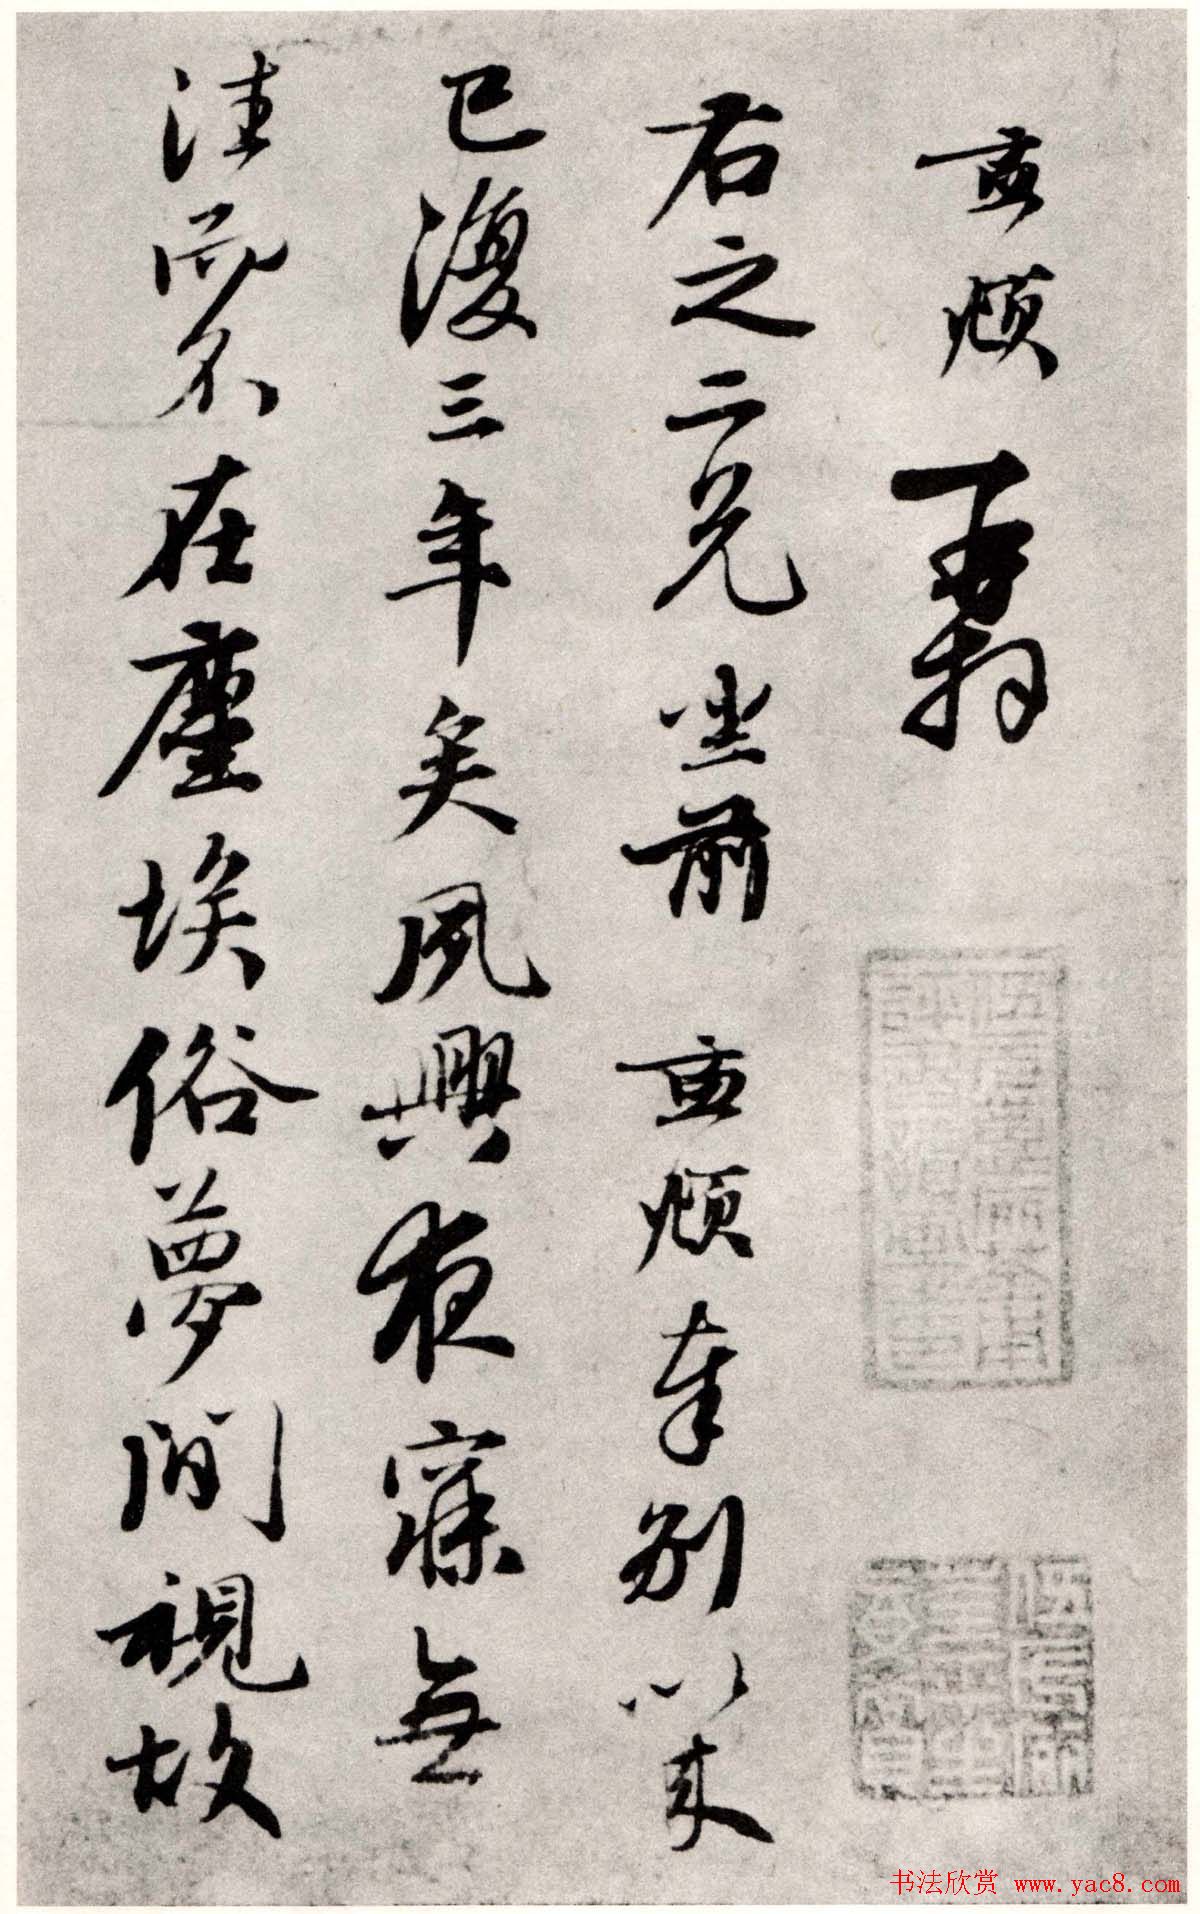 孟頫
右之二兄坐前孟頫奉别以来
已復三年矣夙興夜寐無
往而不在塵埃俗夢間視故
书法欣赏 www.yac8.com